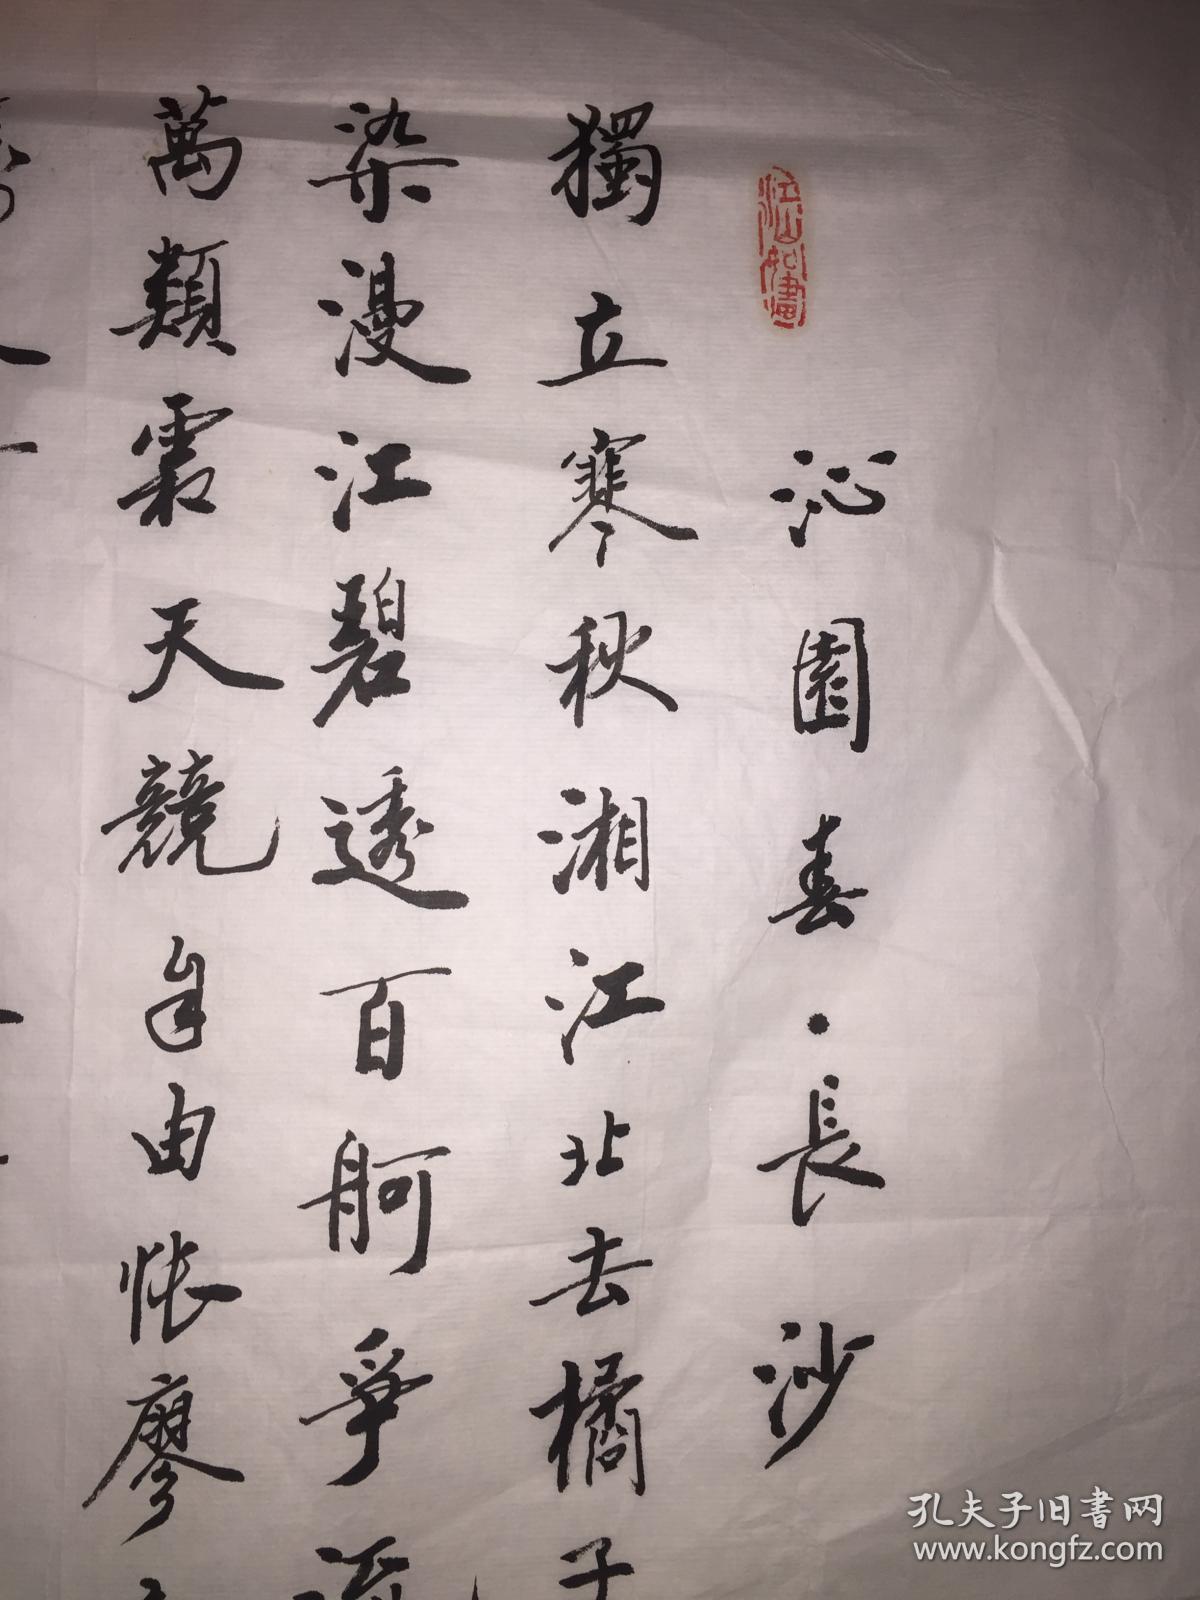 江山如畫
沁園春·長沙
獨立寒秋湘江北去橘子
染漫江碧透百舸爭流
萬類霜天競自由悵廖
孔夫子旧书网
www.kongfz.com